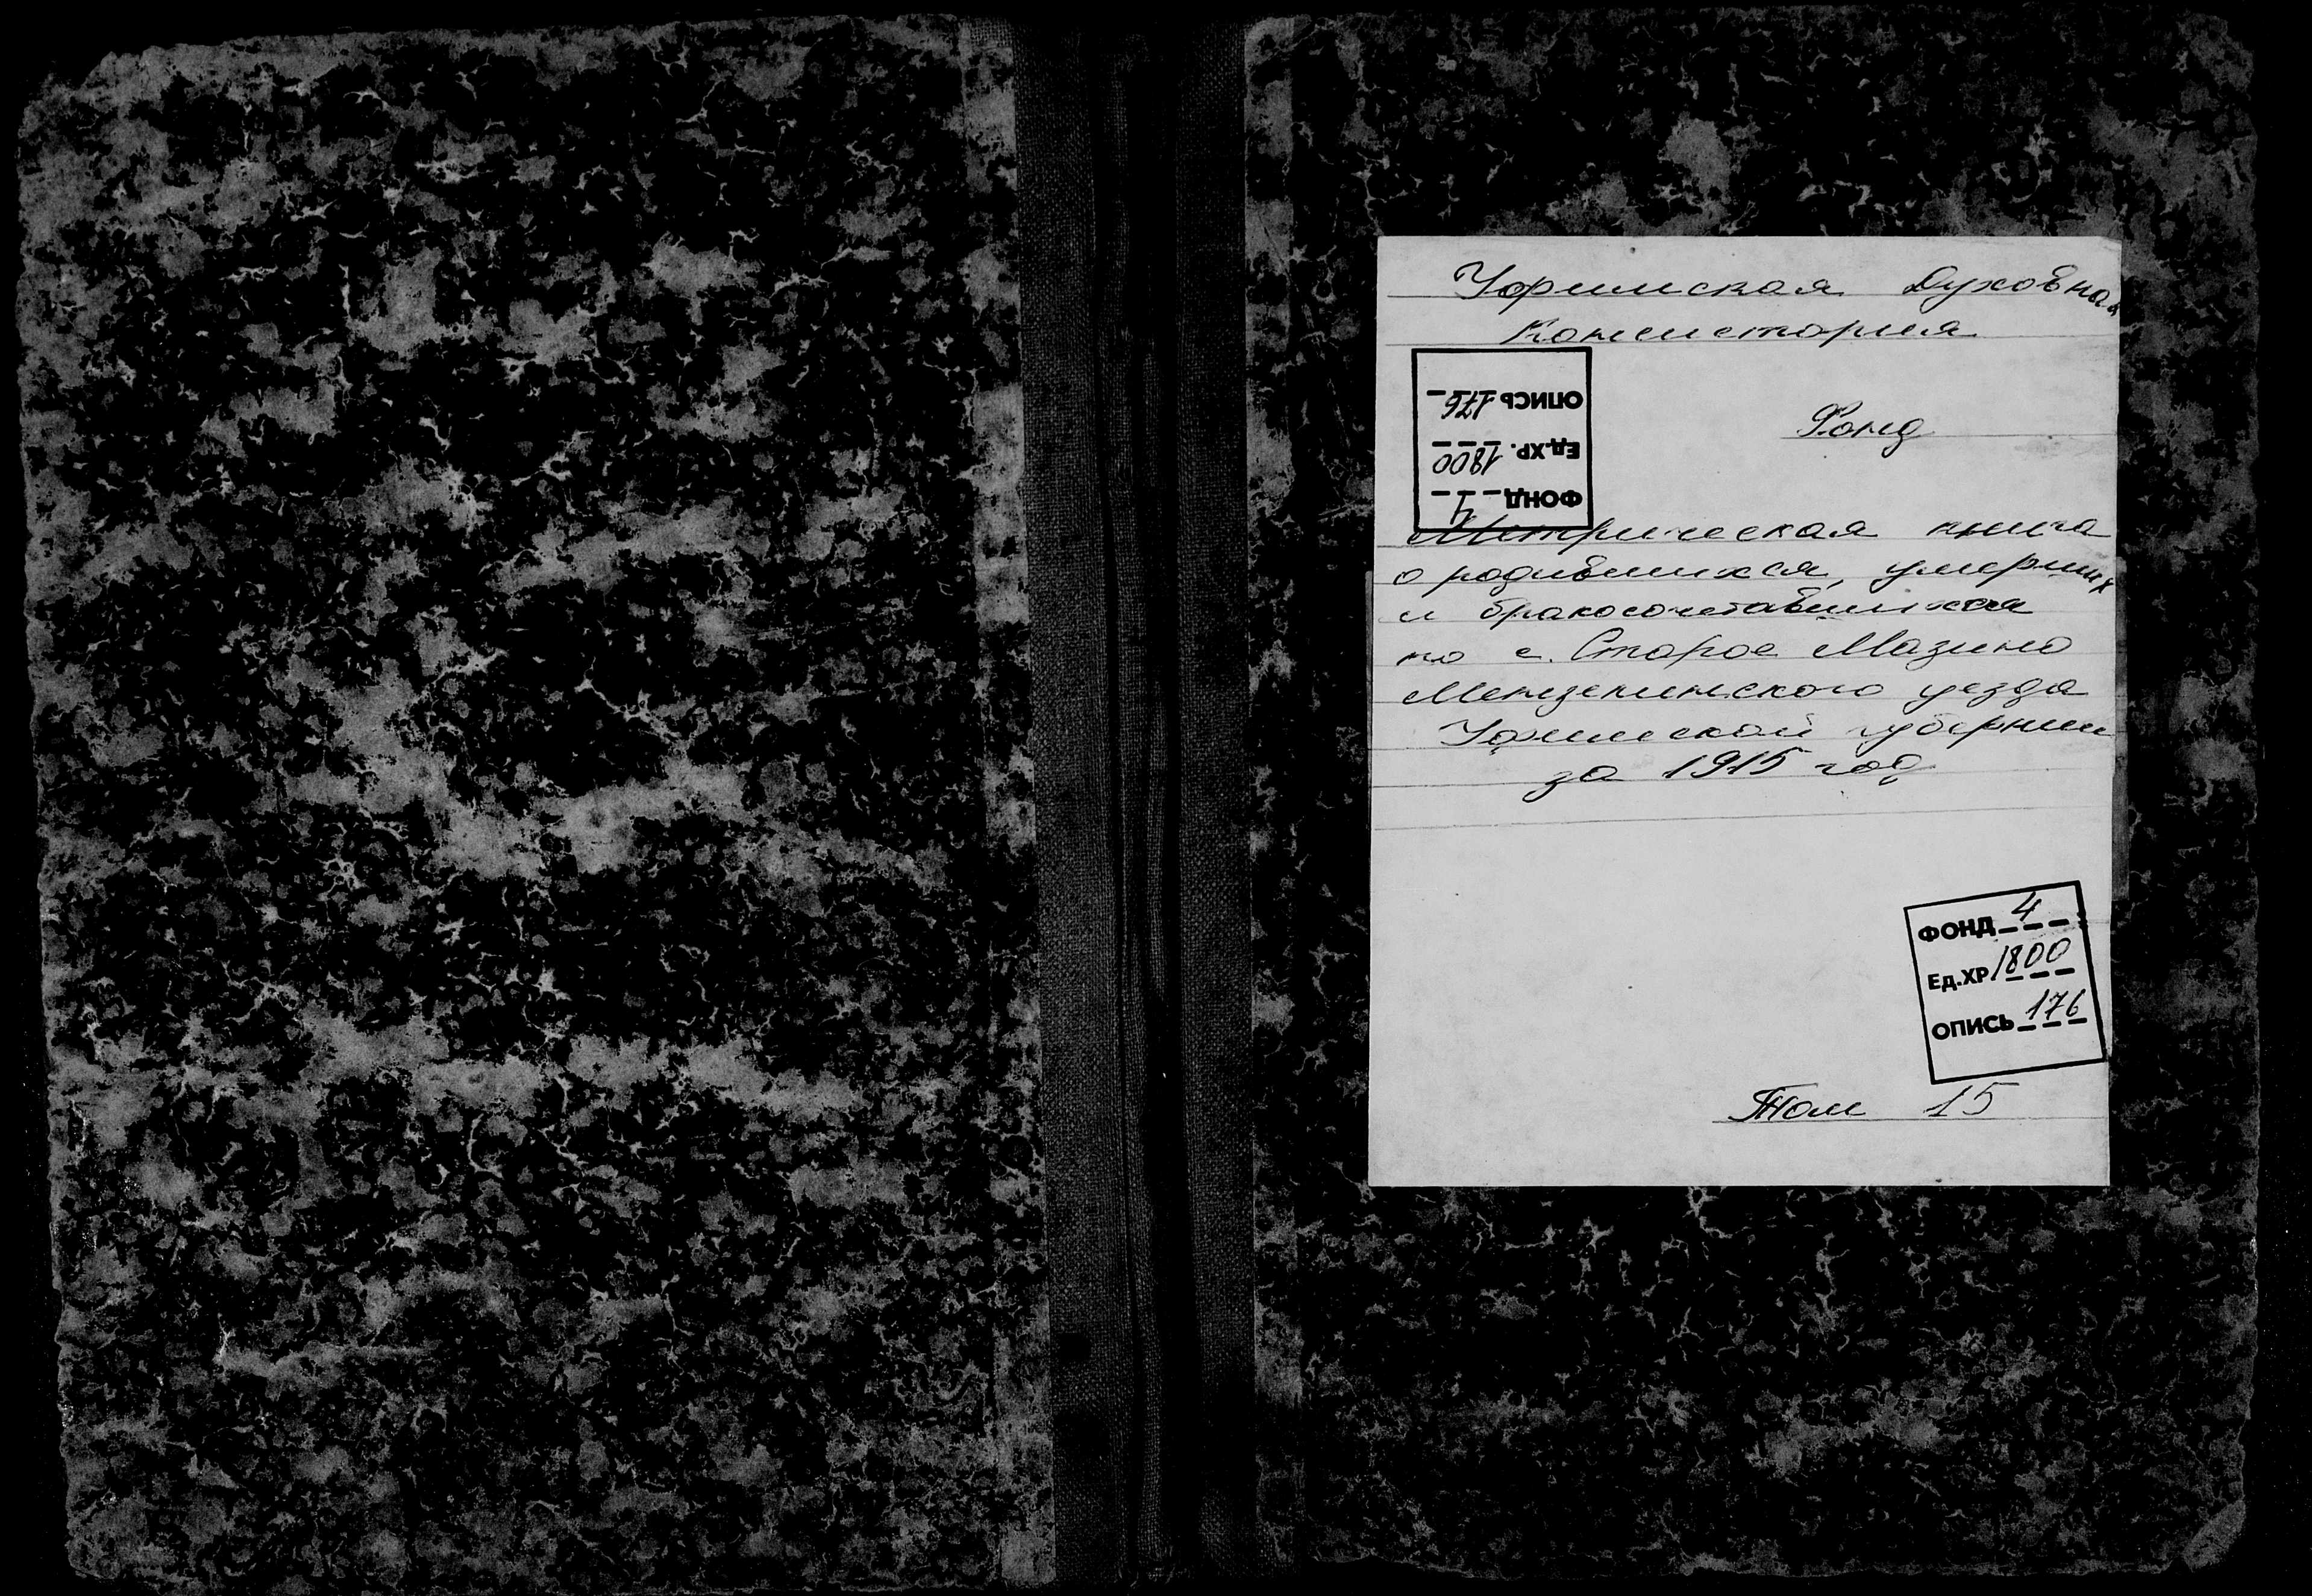 Уфимская Духовная
Консистория
ОПИСЬ 176
Ед.ХР. 1800
ФОНД 4
Фонд
Метрическая книга
о родившихся, умерших
и бракосочетавшихся
по с. Старое Мазино
Мензелинского уезда
Уфимской губернии
за 1915 год
ФОНД 4
Ед.ХР 1800
ОПИСЬ 176
Том 15